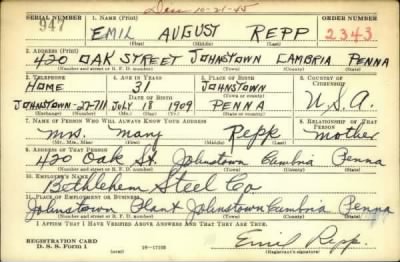 Dec. 10-21-45
SERIAL NUMBER 1. NAME (Print) ORDER NUMBER
947 EMIL AUGUST REPP 2343
(First) (Middle) (Last)
2. ADDRESS (Print)
420 OAK STREET JOHNSTOWN CAMBRIA PENNA
(Number and street or R. F. D. number) (Town) (County) (State)
3. TELEPHONE 4. AGE IN YEARS 5. PLACE OF BIRTH 6. COUNTRY OF CITIZENSHIP
HOME 31 JOHNSTOWN
DATE OF BIRTH
JOHNSTOWN-27-711 JULY 18 1909 PENNA U.S.A.
(Exchange) (Number) (Mo.) (Day) (Yr.) (State or country)
7. NAME OF PERSON WHO WILL ALWAYS KNOW YOUR ADDRESS 8. RELATIONSHIP OF THAT PERSON
Mrs. Mary Repp Mother
(Mr., Mrs., Miss) (First) (Middle) (Last)
9. ADDRESS OF THAT PERSON
420 Oak St. Johnstown Cambria Penna
(Number and street or R. F. D. number) (Town) (County) (State)
10. EMPLOYER'S NAME
Bethlehem Steel Co
11. PLACE OF EMPLOYMENT OR BUSINESS
Johnstown Plant Johnstown Cambria Penna
(Number and street or R. F. D. number) (Town) (County) (State)
I AFFIRM THAT I HAVE VERIFIED ABOVE ANSWERS AND THAT THEY ARE TRUE.
REGISTRATION CARD
D. S. S. Form 1 (over) 16-17105 Emil Repp.
(Registrant's signature)